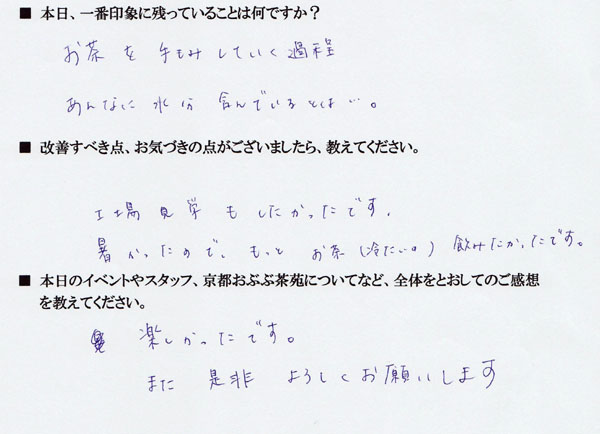 ■ 本日、一番印象に残っていることは何ですか？
お茶を手もみしていく過程
あんなに水分含んでいるとは…。
■ 改善すべき点、お気づきの点がございましたら、教えてください。
工場見学もしたかったです.
暑かったので、もっとお茶(冷たいの)飲みたかったです。
■ 本日のイベントやスタッフ、京都おぶぶ茶苑についてなど、全体をとおしてのご感想
を教えてください。
楽しかったです。
また是非よろしくお願いします